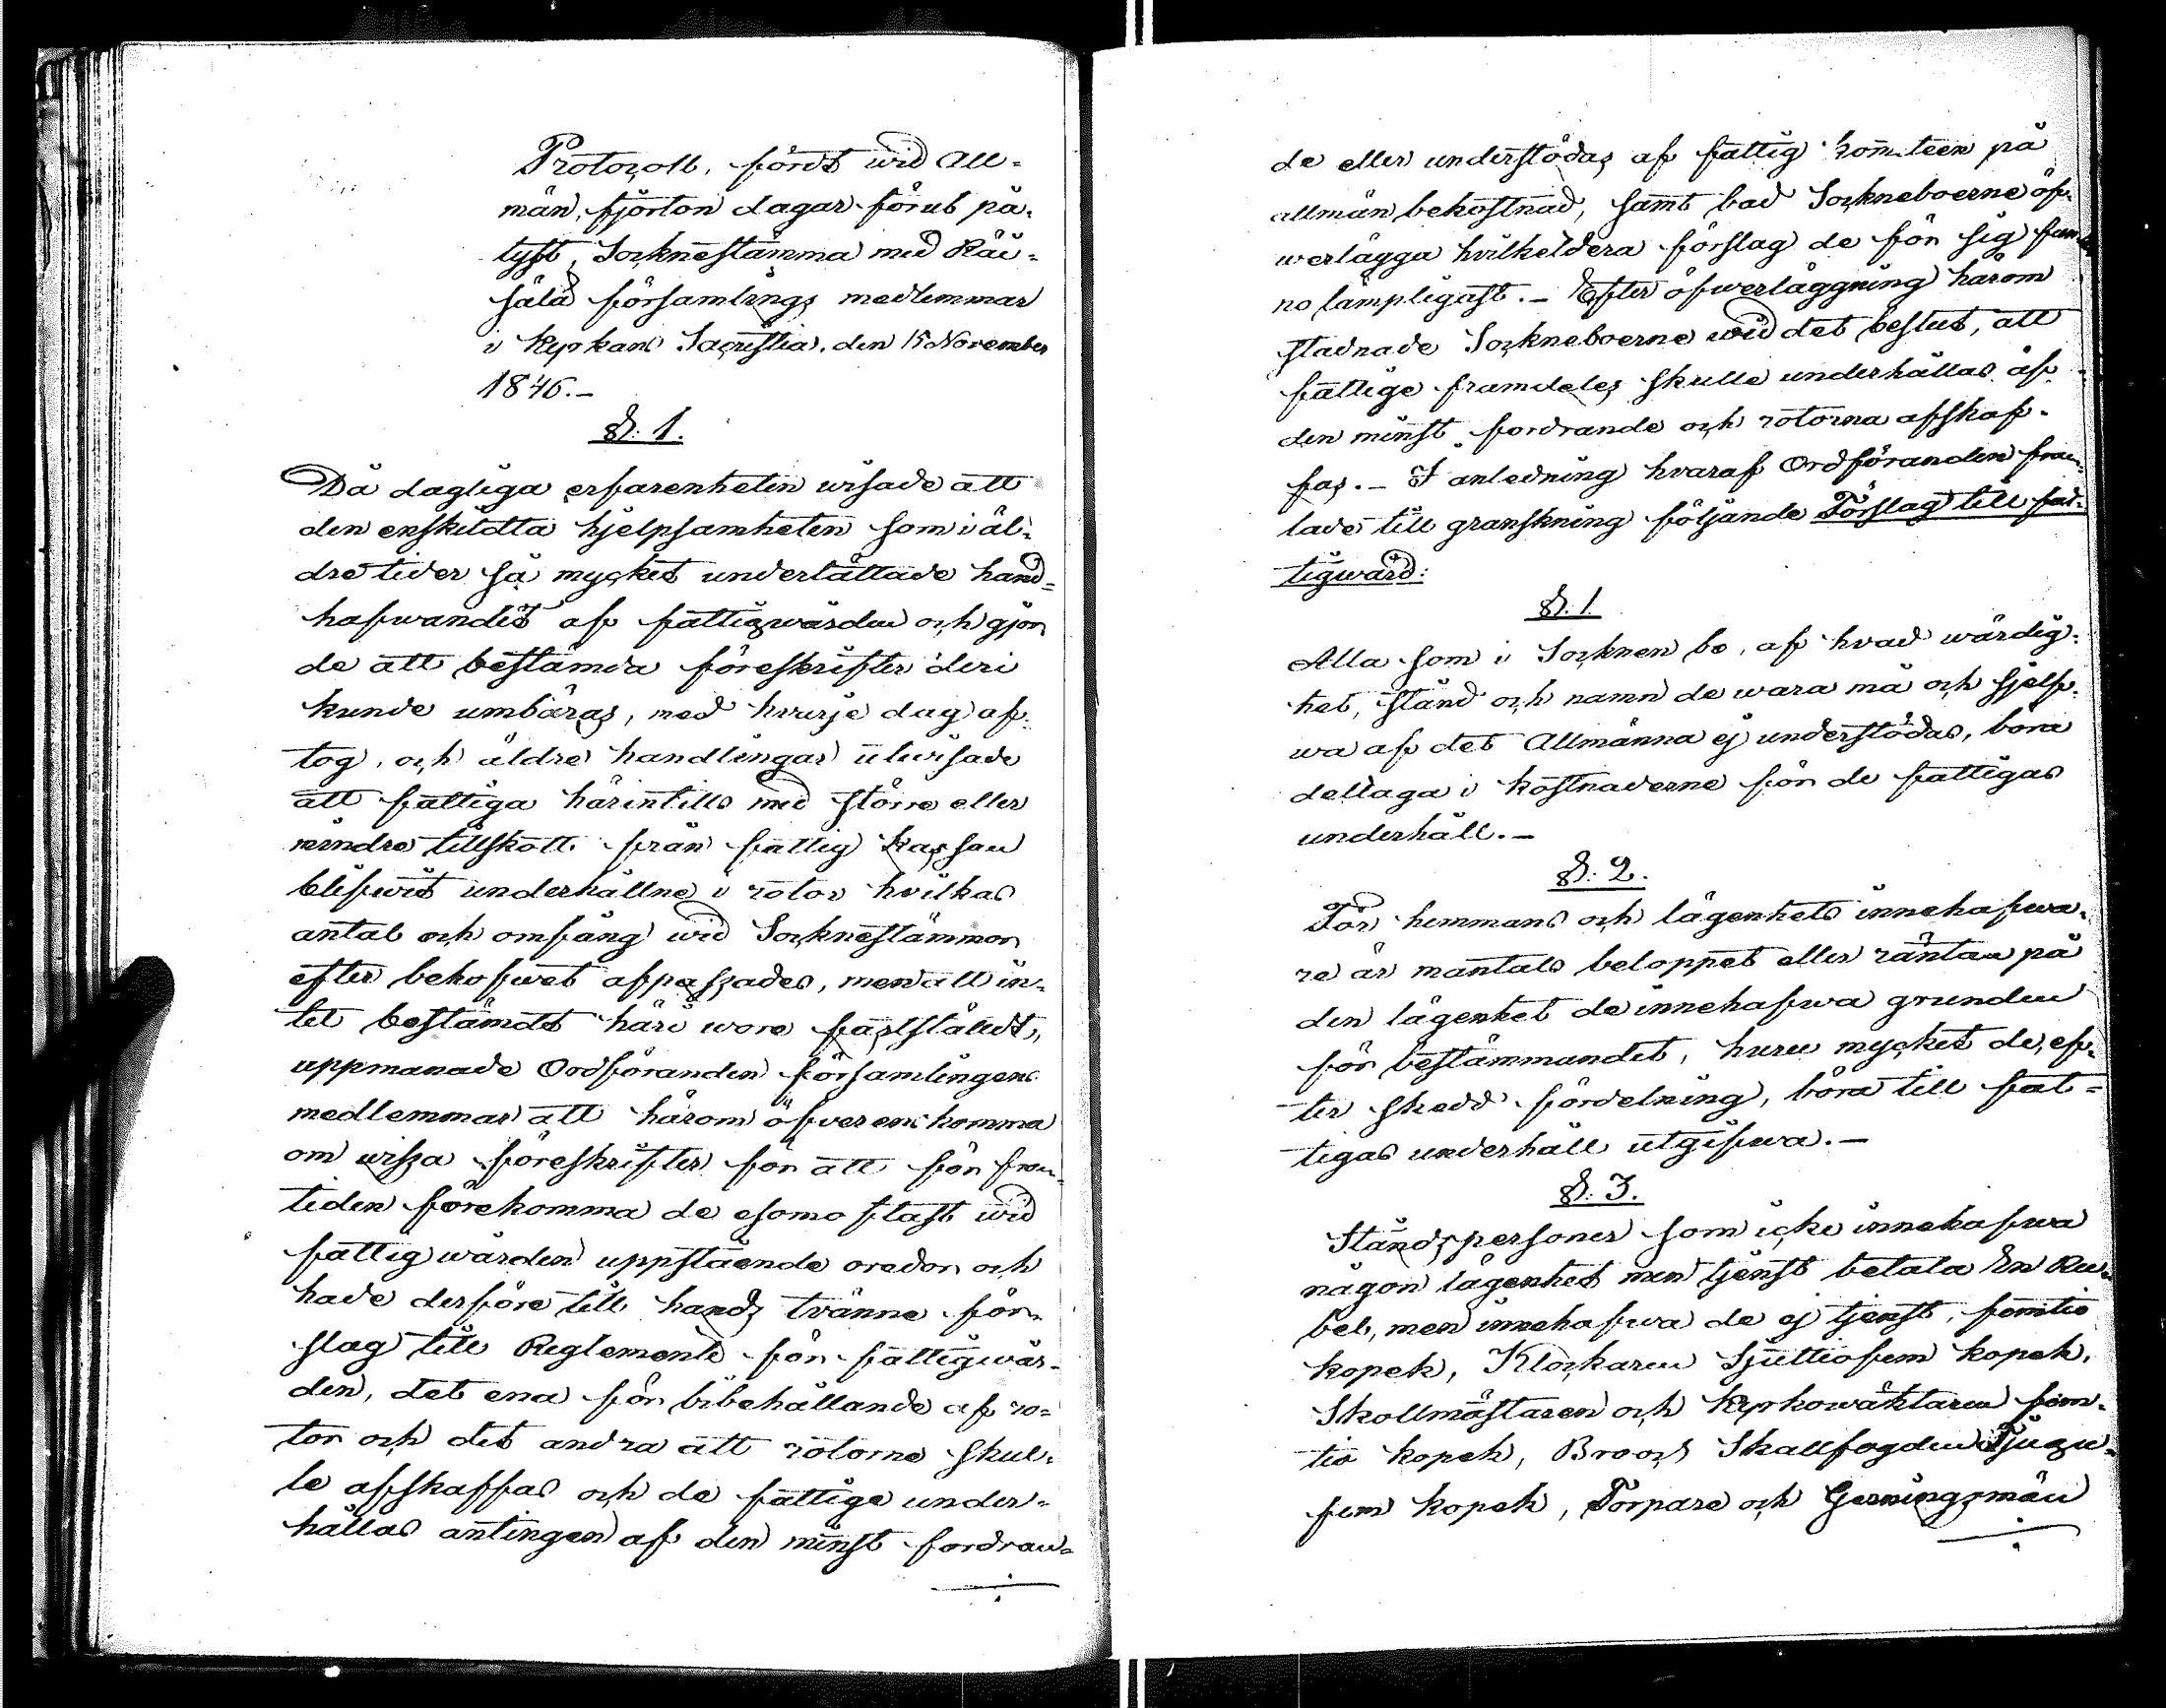 Protocoll, fördt wid All-
män, fjorton dagar förut på-
lyst, Socknestämma med Räi-
sälä församlings medlemmar
i Kyrkans Sacristia, den 15 November
1846.-
§. 1.
Då dagliga erfarenheten wisade att
den enskildta hjelpsamheten som i äl-
dre tider så mycket underlättade hand-
hafwandet af fattigwården och gjor
de att bestämda föreskrifter deri
kunde umbäras, med hwarje dag af-
tog, och äldre handlingar utwisade
att fattiga härintills med större eller
mindre tillskott från fattig Kassan
blifwit underhållne i rotor hvilkas
antal och omfång wid Socknestämmor
efter behofwet afpassades, men att in-
tet bestämdt häri wore fastställdt,
uppmanade Ordföranden församlingens
medlemmar att härom öfverenskomma
om wissa föreskrifter för att för fram-
tiden förekomma de esomoftast wid
fattigwården uppstående oredor och
hade derföre till hands tvänne för-
slag till Reglemente för fattigwår-
den, det ena för bibehållande af ro-
tor och det andra att rotorne skul-
le afskaffas och de fattige under-
hållas antingen af den minst fordran-
de eller understödas af fattig komiteen på
allmän bekostnad, samt bad Sockneboerne öf-
werlägga hvilketdera förslag de för sig fun
no lämpligast.- Efter öfwerläggning härom
stadnade Sockneboerne wid det beslut, att
fattige framdeles skulle underhållas af
den minst fordrande och rotorna afskaf-
fas.- I anledning hvaraf Ordföranden fram-
lade till granskning följande Förslag till fat-
tigwård:
§. 1.
Alla som i Socknen bo, af hvad wärdig-
het, stånd och namn de wara må och sjelf-
wa af det Allmänna ej understödas, böra
deltaga i kostnaderne för de fattigas
underhåll.-
§. 2.
För hemmans och lägenhets innehafwa-
re är mantals beloppet eller räntan på
den lägenhet de innehafwa grunden
för bestämmandet, huru mycket de, ef-
ter skedd fördelning, böra till fat-
tigas underhåll utgifwa.-
§. 3.
Ståndspersoner som icke innehafwa
någon lägenhet men tjenst betala En Ru-
bel, men innehafwa de ej tjenst, femtio
kopek, Klockaren Sjuttiofem kopek,
Skollmästaren och Kyrkowäktaren fem-
tio kopek, Bro och Skallfogden Tjugu-
fem kopek, Torpare och Gerningsmän